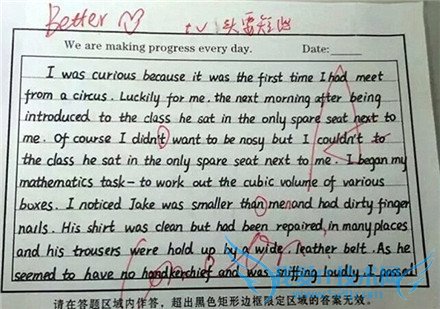 Better
We are making progress every day. Date:
I was curious because it was the first time I had meet
from a circus. Luckily for me. the next morning after being
introduced to the class he sat in the only spare seat next to
me. Of course I didn't want to be nosy but I couldn't to
the class he sat in the only spare seat next to me. I began my
mathematics task - to work out the cubic volume of various
boxes. I noticed Jake was smaller than men and had dirty finger
nails. His shirt was clean but had been repaired in many places
and his trousers were hold up by a wide. leather belt. As he
seemed to have no handkerchief and was sniffing loudly. I passed
请在答题区域内作答，超出黑色矩形边框限定区域的答案无效。